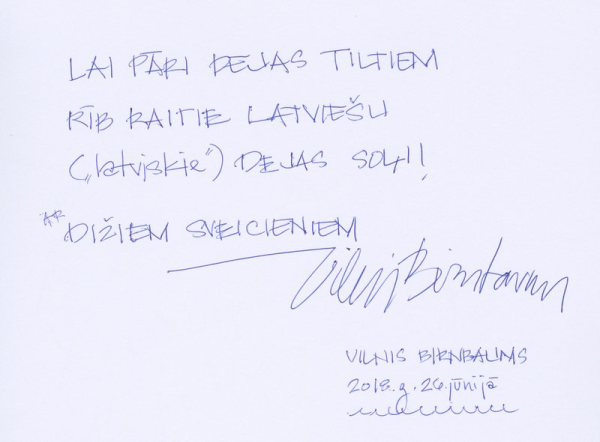 LAI PĀRI DEJAS TILTIEM
RĪB RAITIE LATVIEŠU
(„latvjskie") DEJAS SOĻI!
AR DIŽIEM SVEICIENIEM
VILNIS BIRNBAUMS
2018.g. 26.jūnijā